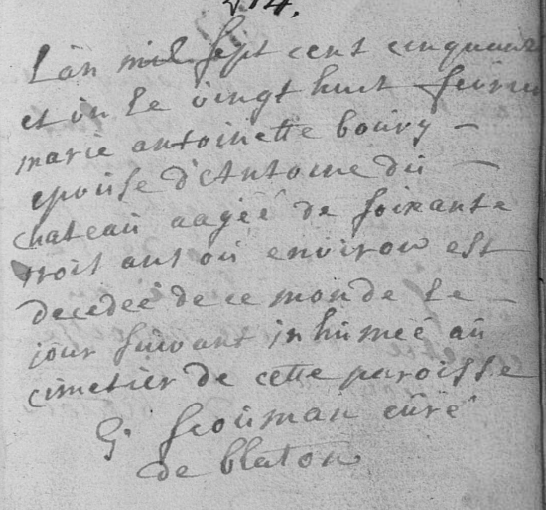 L'an mil sept cent cinquante
et un le vingt huit fevrier
marie antoinette boury -
epouse d'Antoine du -
chateau aagéé de soixante
trois ans ou environ est
decedeé de ce monde le -
jour suivant inhumeé au
cimetier de cette paroisse
G curé
de blaton